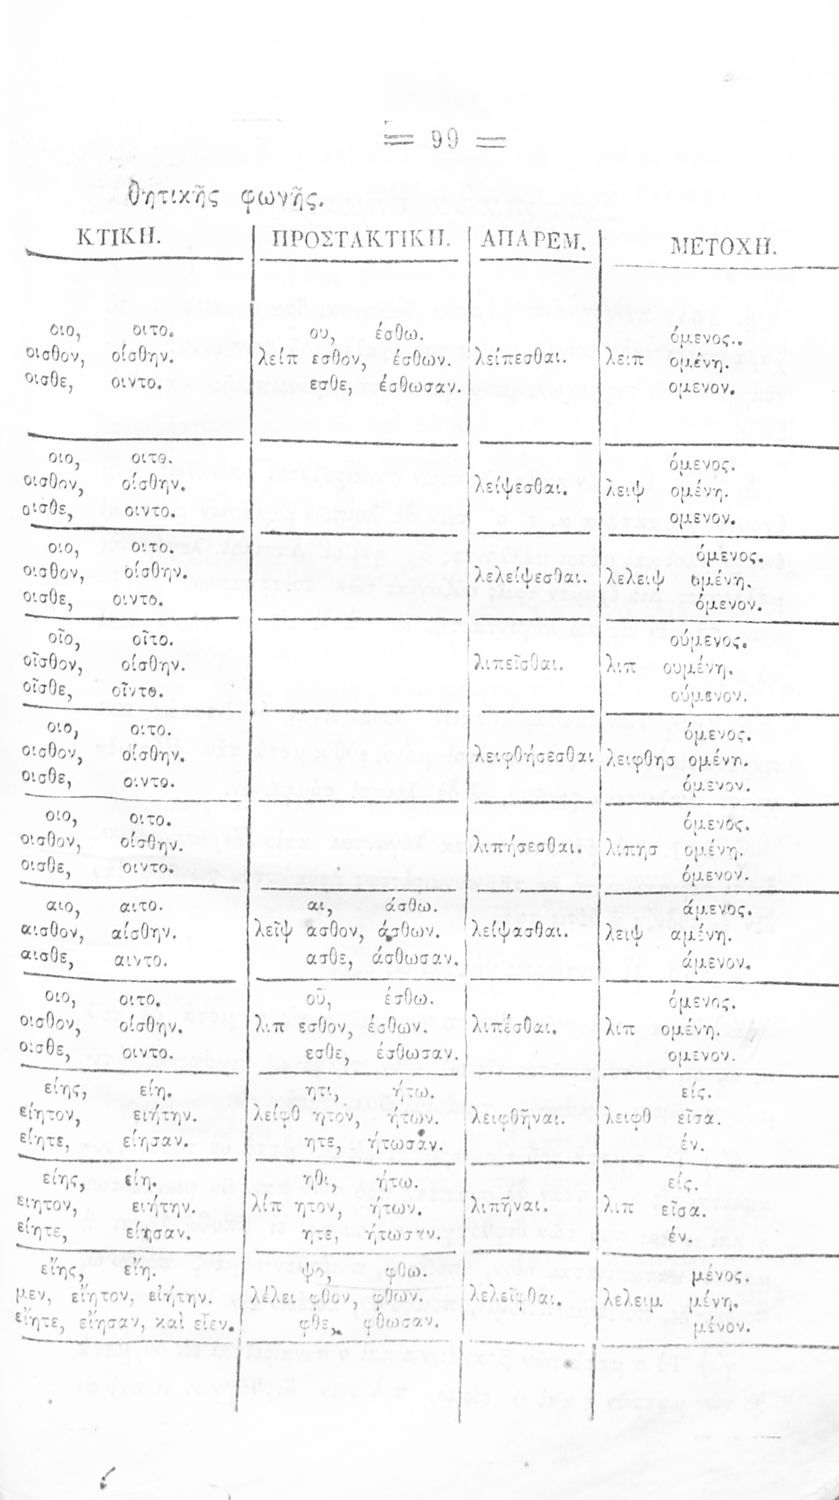 = 99 =
θητικῆς φωνῆς.
ΚΤΙΚΗ. ΠΡΟΣΤΑΚΤΙΚΗ. ΑΠΑΡΕΜ. ΜΕΤΟΧΗ.
οιο, οιτο. ου, έσθω. όμενος.
οισθον, οίσθην. λείπ εσθον, έσθων. λείπεσθαι. λειπ ομένη.
οισθε, οιντο. εσθε, έσθωσαν. ομενον.
οιο, οιτο. όμενος.
οισθον, οίσθην. λείψεσθαι. λειψ ομένη.
οισθε, οιντο. ομενον.
οιο, οιτο. όμενος.
οισθον, οίσθην. λελείψεσθαι. λελειψ ομένη.
οισθε, οιντο. όμενον.
οῖο, οῖτο. ούμενος.
οῖσθον, οίσθην. λιπεῖσθαι. λιπ ουμένη.
οῖσθε, οῖντο. ούμενον.
οιο, οιτο. όμενος.
οισθον, οίσθην. λειφθήσεσθαι λειφθησ ομένη.
οισθε, οιντο. όμενον.
οιο, οιτο. όμενος.
οισθον, οίσθην. λιπήσεσθαι. λιπησ ομένη.
οισθε, οιντο. όμενον.
αιο, αιτο. αι, άσθω. άμενος.
αισθον, αίσθην. λεῖψ ασθον, άσθων. λείψασθαι. λειψ αμένη.
αισθε, αιντο. ασθε, άσθωσαν. άμενον.
οιο, οιτο. οῦ, έσθω. όμενος.
οισθον, οίσθην. λιπ εσθον, έσθων. λιπέσθαι. λιπ ομένη.
οισθε, οιντο. εσθε, έσθωσαν. ομενον.
είης, είη. ητι, ήτω. είς.
είητον, ειήτην. λείφθ ητον, ήτων. λειφθῆναι. λειφθ εῖσα.
είητε, είησαν. ητε, ήτωσαν. έν.
είης, είη. ηθι, ήτω. είς.
ειητον, ειήτην. λίπ ητον, ήτων. λιπῆναι. λιπ εῖσα.
είητε, είησαν. ητε, ήτωσαν. έν.
εἴης, εἴη. ψο, φθω. μένος.
μεν, εἴητον, εἰήτην. λέλει φθον, φθων. λελεῖφθαι. λελειμ μένη.
εἴητε, εἴησαν, καὶ εἶεν. φθε, φθωσαν. μένον.